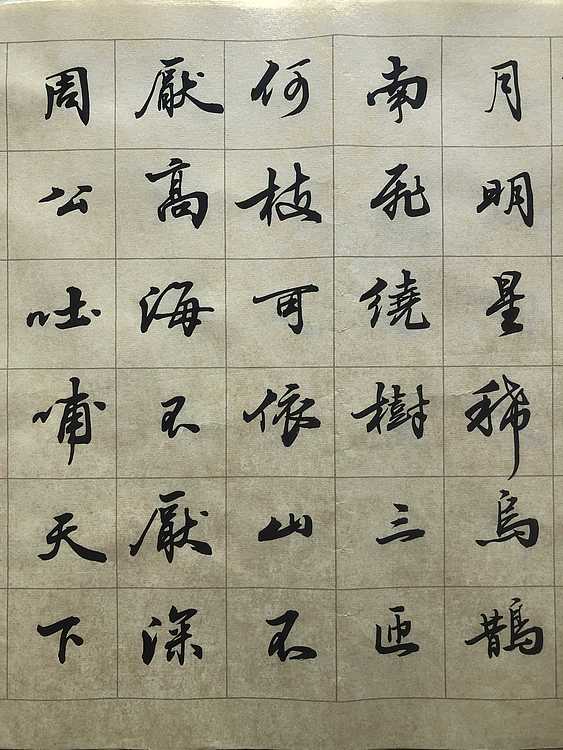 月明星稀烏鵲
南飛繞樹三匝
何枝可依山不
厭高海不厭深
周公吐哺天下